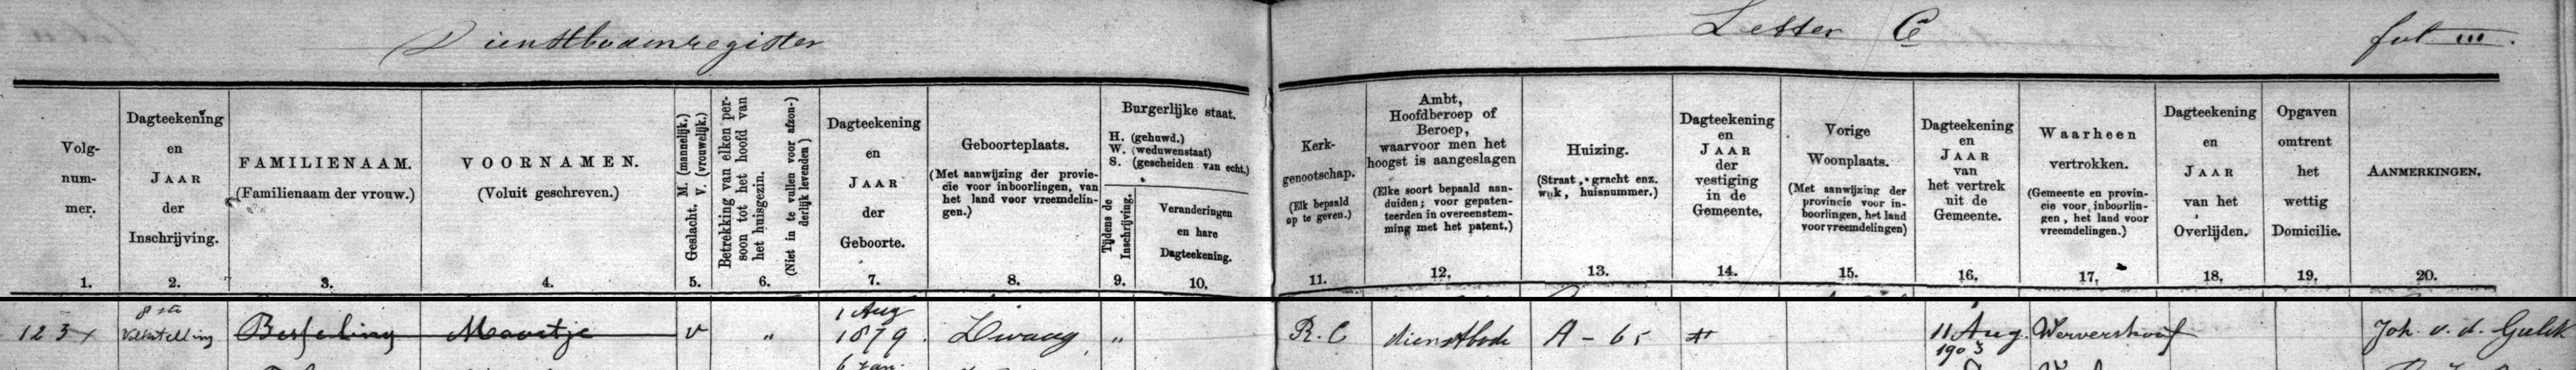 Dienstbodenregister
Letter C
fol III.
Volg-
num-
mer.
1.
Dagteekening
en
JAAR
der
Inschrijving.
2.
FAMILIENAAM.
(Familienaam der vrouw.)
3.
VOORNAMEN.
(Voluit geschreven.)
4.
Geslacht. M. (mannelijk.)
V. (vrouwelijk.)
5.
Betrekking van elken per-
soon tot het hoofd van
het huisgezin.
(Niet in te vullen voor afzon-
derlijk levenden)
6.
Dagteekening
en
JAAR
der
Geboorte.
7.
Geboorteplaats.
(Met aanwijzing der provin-
cie voor inboorlingen, van
het land voor vreemdelin-
gen.)
8.
Burgerlijke staat.
H. (gehuwd.)
W. (weduwenstaat)
S. (gescheiden van echt.)
Tijdens de
Inschrijving.
9.
Veranderingen
en hare
Dagteekening.
10.
Kerk-
genootschap.
(Elk bepaald
op te geven.)
11.
Ambt,
Hoofdberoep of
Beroep,
waarvoor men het
hoogst is aangeslagen
(Elke soort bepaald aan-
duiden; voor gepaten-
teerden in overeenstem-
ming met het patent.)
12.
Huizing.
(Straat, gracht enz.
wijk, huisnummer.)
13.
Dagteekening
en
JAAR
der
vestiging
in de
Gemeente.
14.
Vorige
Woonplaats.
(Met aanwijzing der
provincie voor in-
boorlingen, het land
voor vreemdelingen)
15.
Dagteekening
en
JAAR
van
het vertrek
uit de
Gemeente.
16.
Waarheen
vertrokken.
(Gemeente en provin-
cie voor inboorlin-
gen, het land voor
vreemdelingen.)
17.
Dagteekening
en
JAAR
van het
Overlijden.
18.
Opgaven
omtrent
het
wettig
Domicilie.
19.
AANMERKINGEN.
20.
123
8ste
Volkstelling
Besseling
Maartje
v
"
1 Aug
1879.
Zwaag
"
R.C
dienstbode
A - 65
11 Aug.
1903
Wervershoof
Joh. v. d. Gulik
6 Jan.